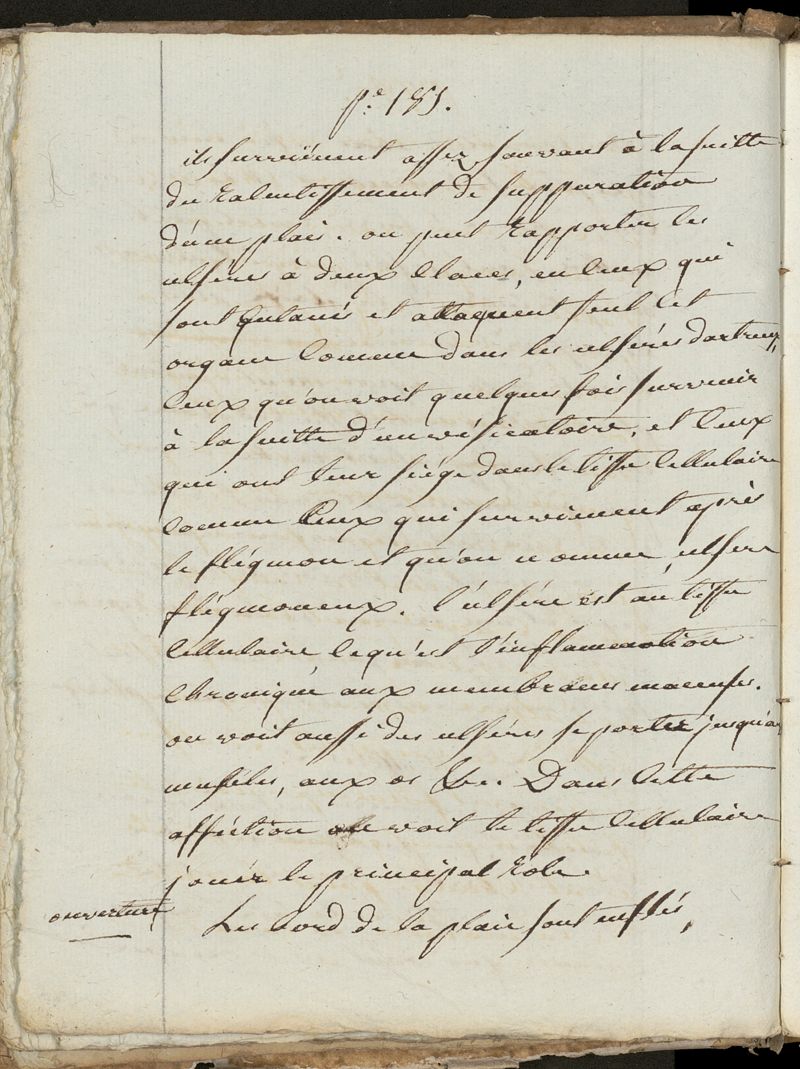 pe. 181.
ils surviènent assez souvant à la suitte
du ralentissement de suppuration
d'une plaie. on peut rapporter les
ulsères à deux claces, en ceux qui
sont qutanés et attaquent seul cet
organe comme dans les ulsères dartreux,
ceux qu'on voit quelques fois survenir
à la suitte d'un vésicatoire, et ceux
qui ont leur siége dans le tissu cellulaire
comme ceux qui surviennent après
le flégmon et qu'on nomme, ulsère
flégmoneux. l'ulsére est au tissu
cellulaire ce qu'est l'inflamation
chronique aux membranes muceuses.
on voit aussi des ulsères se porter jusqu'au
muscles, aux os &c. Dans cette
affection on voit le tissu cellulaire
jouér le principal rôle.
ouverture
Les bord de la plaie sont enflés,